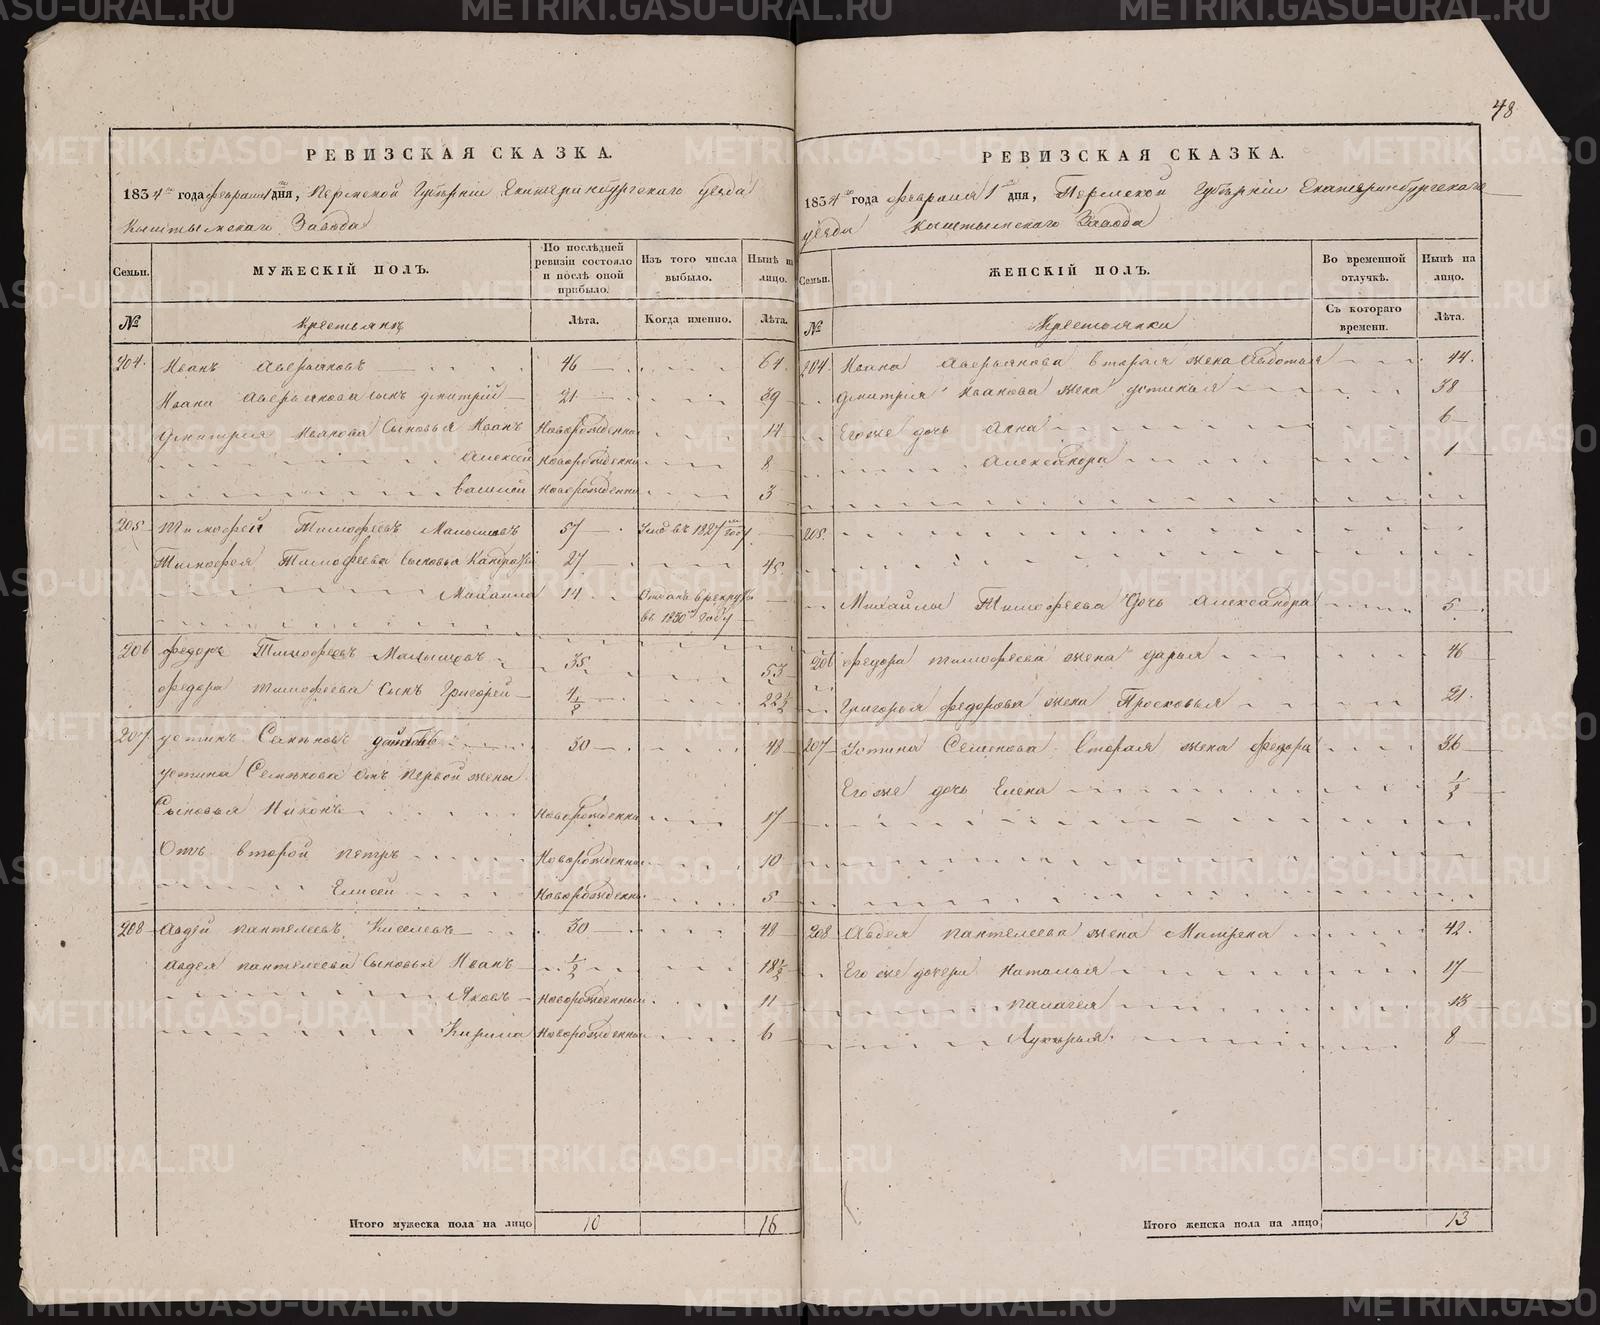 48
РЕВИЗСКАЯ СКАЗКА.
1834 года февраля 1 дня, Пермской Губерніи Екатеринбургского уезда
Кыштымскаго Завода
Семьи.
МУЖЕСКІЙ ПОЛЪ.
По послѣдней ревизіи состояло и послѣ оной прибыло.
Изъ того числа выбыло.
Нынѣ на лицо.
№
Крестьянъ
Лѣта.
Когда именно.
Лѣта.
204. Иванъ Аверьяновъ 46 64.
Ивана Аверьянова сынъ Дмитрій 21 39
Дмитрия Иванова Сыновья Иванъ Новорожденны 14
Алексей Новорожденны 8
Василей Новорожденны 3
205 Тимофей Тимофеевъ Малышевъ 57 Умѣ въ 1827 году
Тимофея Тимофеева Сыновья 27 45
Михайло 14 Отданъ в рекруты
въ 1830 году
206 Федоръ Тимофеевъ Малышевъ 35 53
Федора Тимофеева Сынъ Григорей 4½ 22½
207 Устинъ Семеновъ 30 48
Устина Семенова Отъ первой жены
Сыновья Никонъ Новорожденны 17
Отъ второй Петръ Новорожденны 10
Елисей Новорожденны 5
208 Авдей Пантелеевъ Киселевъ 30 48
Авдея Пантелеева Сыновья Иванъ ½ 18½
Яковъ Новорожденный 11
Кирила Новорожденны 6
Итого мужеска пола на лицо 10 16
РЕВИЗСКАЯ СКАЗКА.
1834 года февраля 1 дня, Пермской Губерніи Екатеринбургскаго
уезда Кыштымскаго Завода
Семьи.
ЖЕНСКІЙ ПОЛЪ.
Во временной отлучкѣ.
Нынѣ на лицо.
№
Крестьянки
Съ котораго времени.
Лѣта.
204. Ивана Аверьянова вторая жена Авдотья 44.
Дмитрія Иванова жена Устинья 38
Его же дочь Анна 6
Александра 1
205.
Михайлы Тимофеева Дочь Александра 5
206 Федора Тимофеева жена Дарья 46
Григорья Федорова жена Прасковья 21.
207 Устина Семенова вторая жена Федора 36
Его же дочь Елена ½
208 Авдея Пантелеева жена Матрена 42.
Его же дочери Наталья 17
Палагея 13
Лукерья 8
Итого женска пола на лицо 13
METRIKI.GASO-URAL.RU